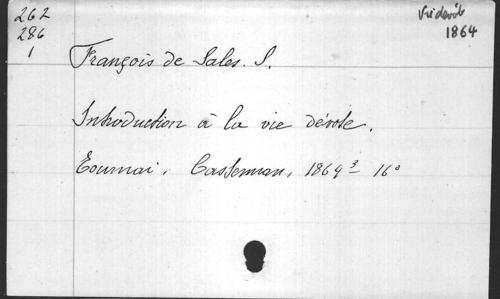 262
286
1
Vie dévote
1864
François de Sales. S.
Introduction à la vie dévote.
Tournai, Casterman, 1864³ 16°